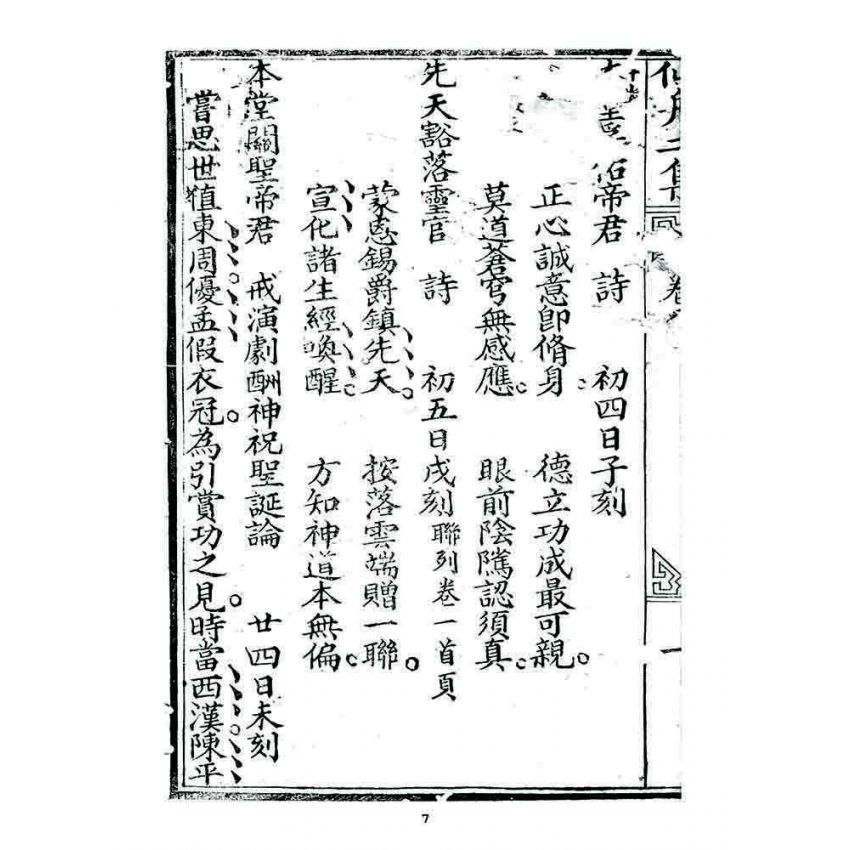 帝君　詩　初四日子刻
正心誠意卽脩身　德立功成最可親。
莫道蒼穹無感應。眼前陰隲認須真。
先天豁落靈官　詩　初五日戌刻聯列卷一首頁
蒙恩錫爵鎮先天。按落雲端贈一聯。
宣化諸生經喚醒。方知神道本無偏。
本堂關聖帝君　戒演劇酬神祝聖誕論　廿四日未刻
嘗思世値東周優孟假衣冠。為引賞功之見。時當西漢陳平
7